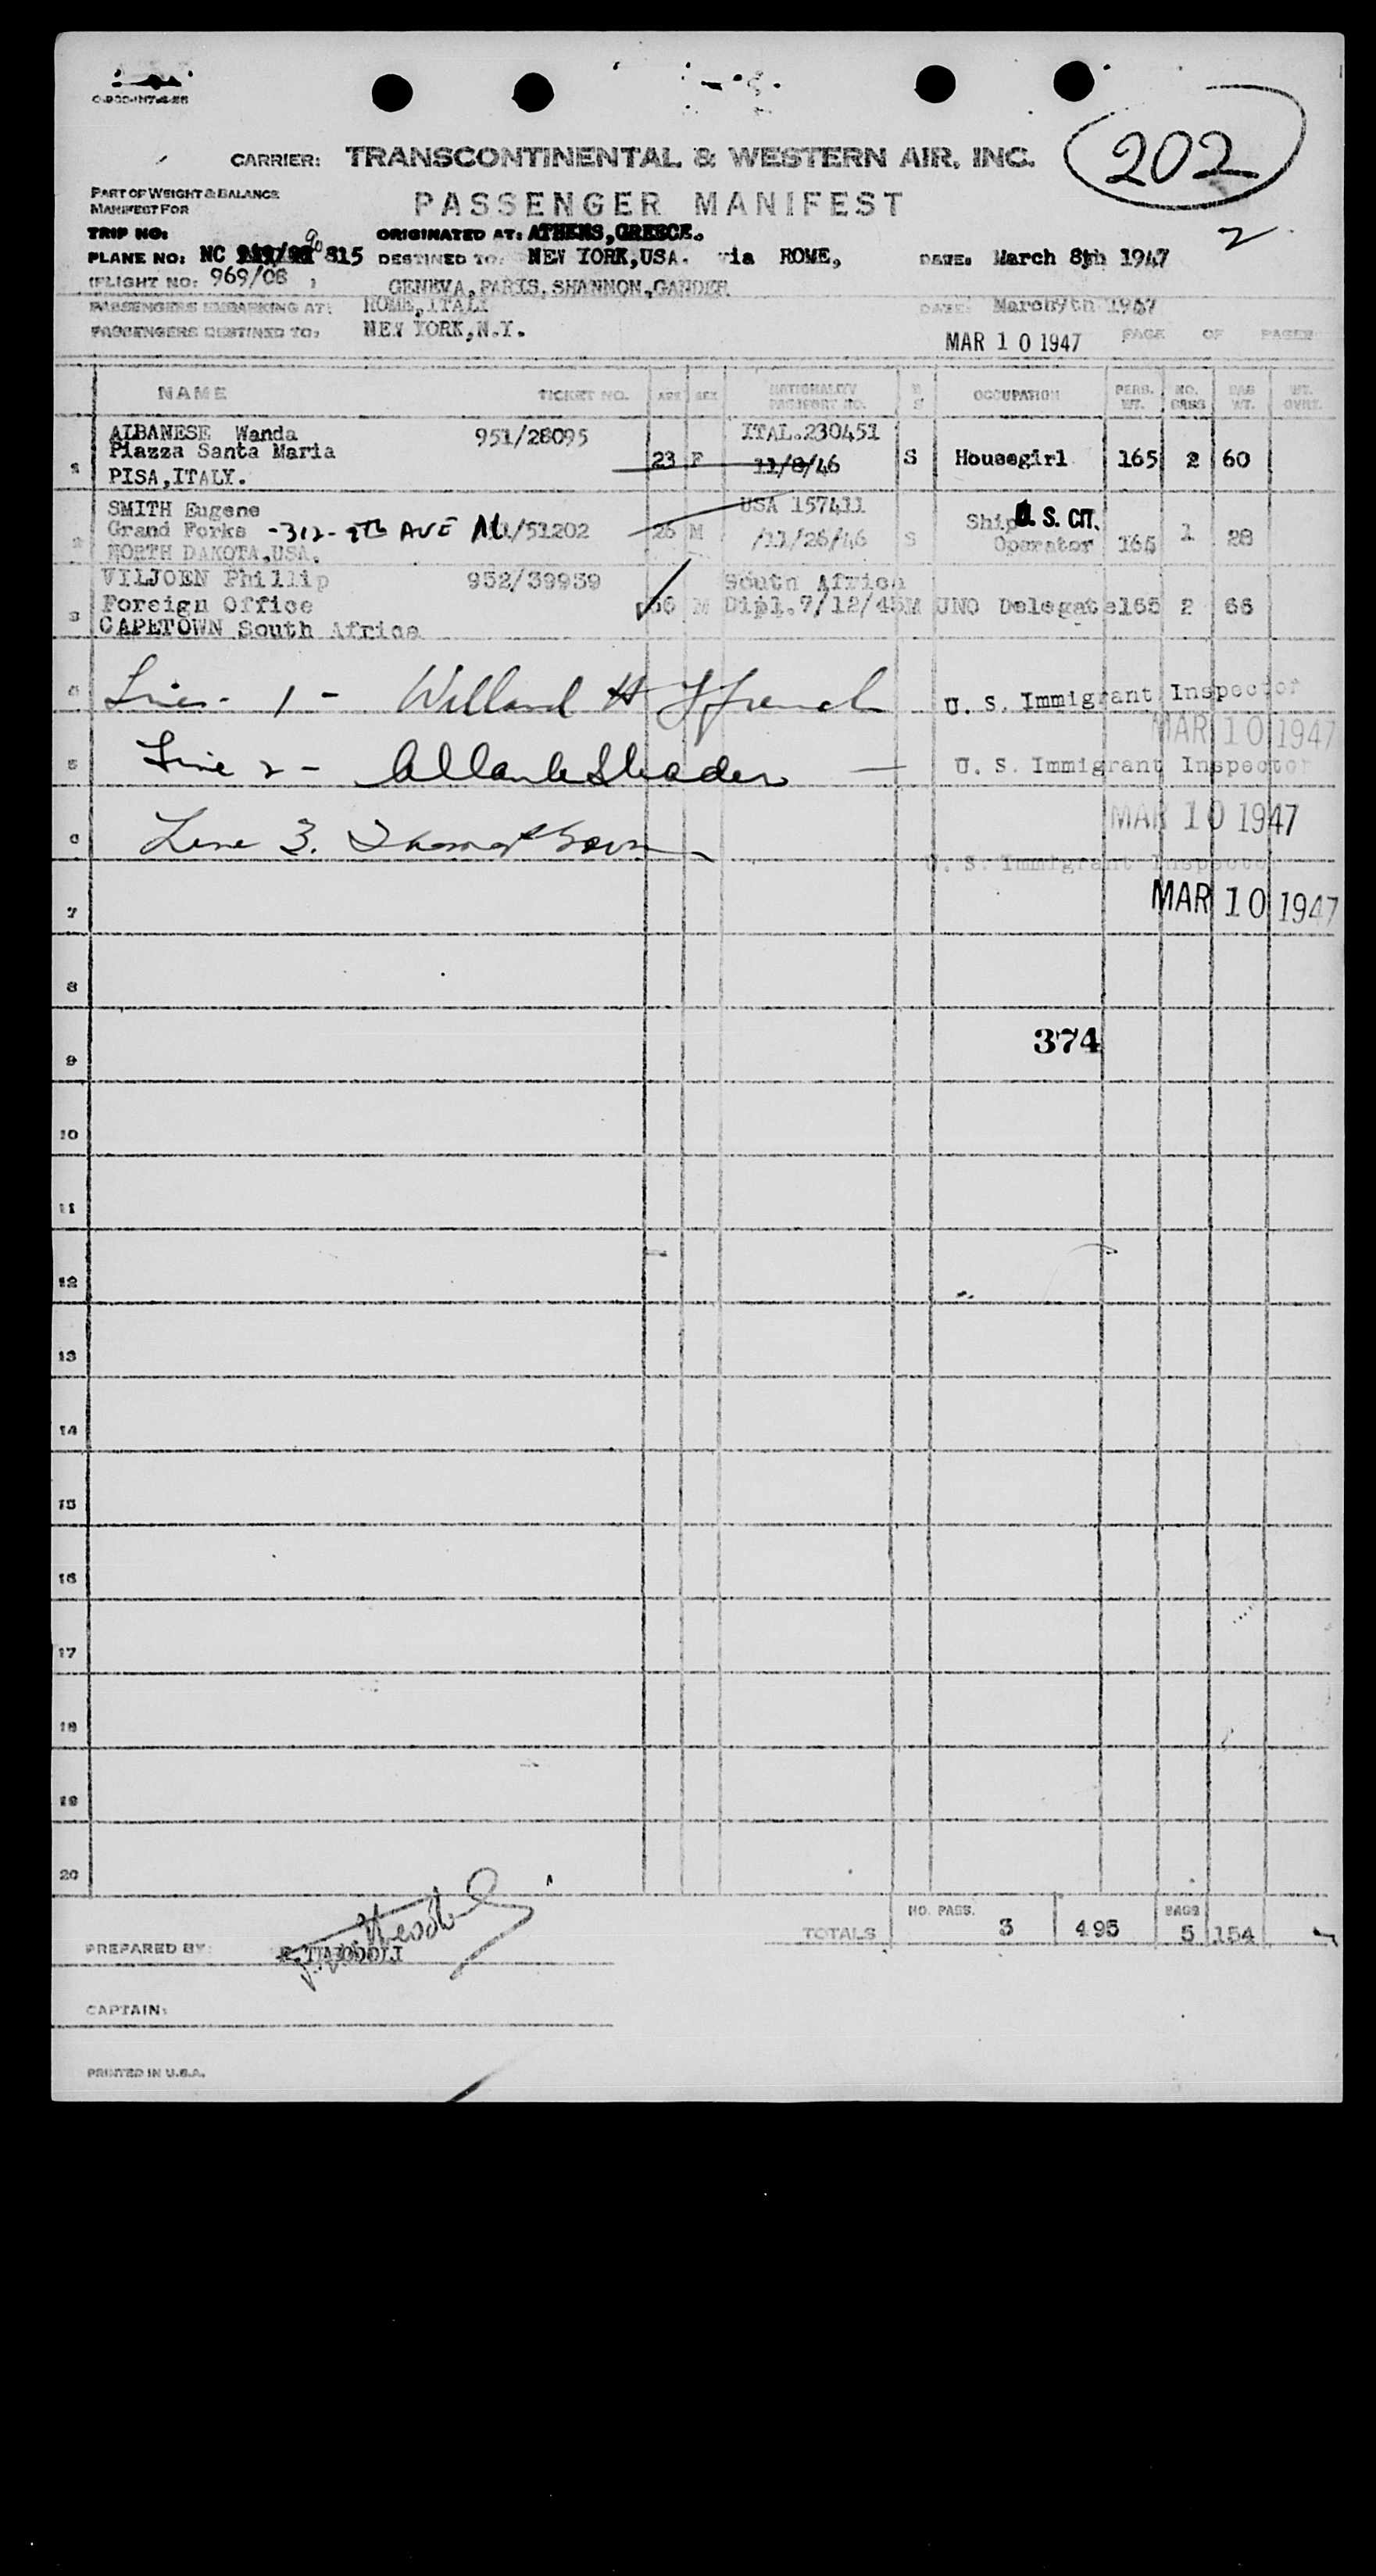 202
CARRIER: TRANSCONTINENTAL & WESTERN AIR, INC.
PART OF WEIGHT & BALANCE
MANIFEST FOR
PASSENGER MANIFEST
2
TRIP NO: ORIGINATED AT: ATHENS,GREECE.
PLANE NO: NC 90815 DESTINED TO: NEW YORK,USA. via ROME, DATE: March 8th 1947
(FLIGHT NO: 969/08 ) GENEVA,PARIS,SHANNON,GANDER
PASSENGERS EMBARKING AT: ROME,ITALY DATE: March9th 1947
PASSENGERS DESTINED TO: NEW YORK,N.Y. MAR 10 1947 PAGE OF PAGES
NAME TICKET NO. AGE SEX NATIONALITY PASSPORT NO. M S OCCUPATION PERS. WT. NO. BAGS BAG WT. WT. OVRT.
ALBANESE Wanda 951/28095 ITAL.230451
Piazza Santa Maria
1 PISA,ITALY. 23 F 11/8/46 S Housegirl 165 2 60
SMITH Eugene USA 157411
Grand Forks -312- 9th AVE N /51202 Ship U. S. CIT.
2 NORTH DAKOTA,USA. 26 M /11/26/46 S Operator 165 1 28
VILJOEN Phillip 952/39959 South Africa
Foreign Office M Dipl.7/12/45 M UNO Delegate 165 2 66
3 CAPETOWN South Africa
4 Line - 1 - Willard H French U. S. Immigrant Inspector
MAR 10 1947
5 Line 2 - U. S. Immigrant Inspector
MAR 10 1947
6 Line 3.
U. S. Immigrant Inspector
MAR 10 1947
7
8
374
9
10
11
12
13
14
15
16
17
18
19
20
TOTALS NO. PASS. 3 495 BAGS 5 154
PREPARED BY:
CAPTAIN:
PRINTED IN U.S.A.